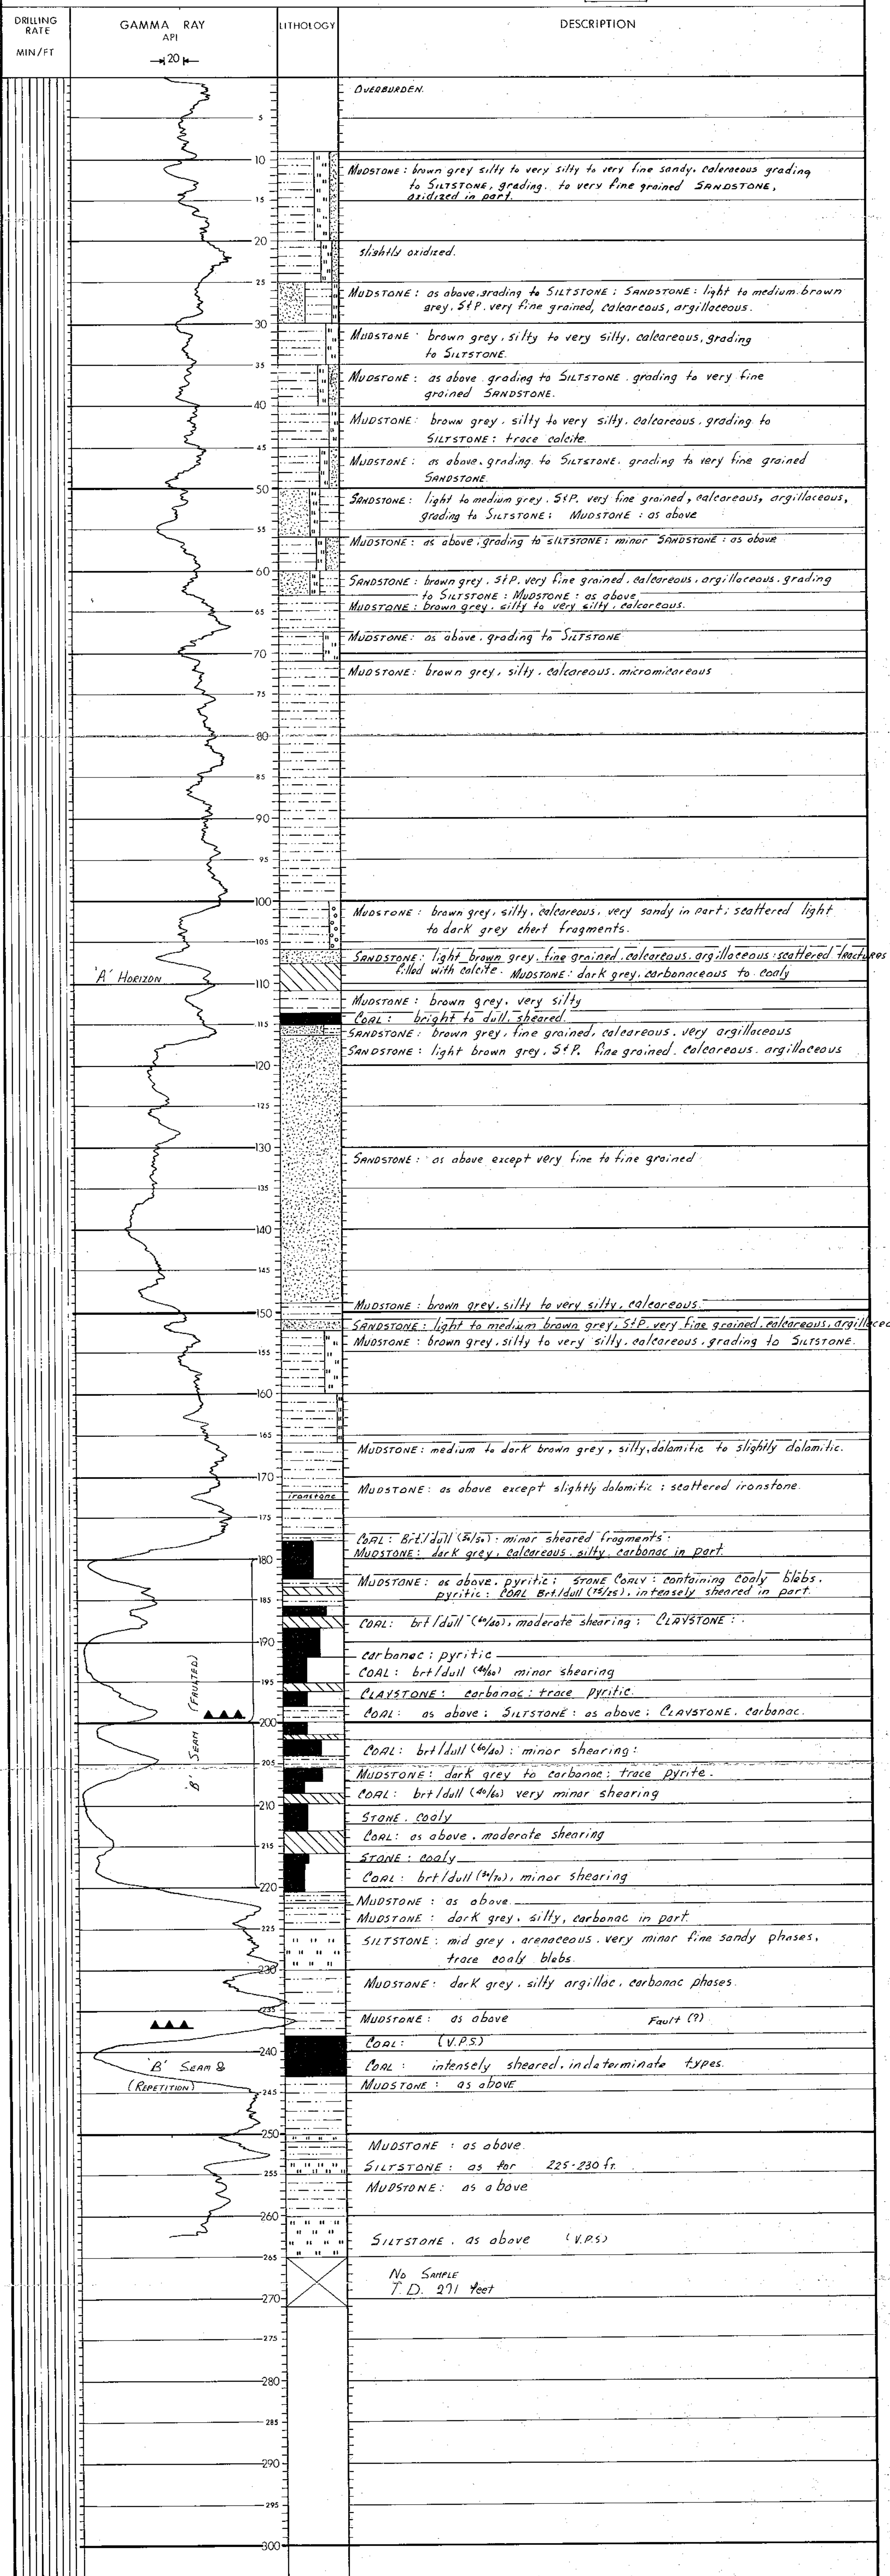 DRILLING RATE
MIN/FT
GAMMA RAY
API
20
LITHOLOGY
DESCRIPTION
OVERBURDEN.
5
10
MUDSTONE: brown grey silty to very silty to very fine sandy, calcareous grading
to SILTSTONE, grading. to very fine grained SANDSTONE,
oxidized in part.
15
20
slightly oxidized.
25
MUDSTONE: as above, grading to SILTSTONE; SANDSTONE: light to medium brown
grey, S&P. very fine grained, calcareous, argillaceous.
30
MUDSTONE: brown grey, silty to very silty, calcareous, grading
to SILTSTONE.
35
MUDSTONE: as above grading to SILTSTONE. grading to very fine
grained SANDSTONE.
40
MUDSTONE: brown grey, silty to very silty, calcareous, grading to
SILTSTONE: trace calcite
45
MUDSTONE: as above, grading to SILTSTONE. grading to very fine grained
SANDSTONE.
50
SANDSTONE: light to medium grey. S&P. very fine grained, calcareous, argillaceous,
grading to SILTSTONE; MUDSTONE: as above
55
MUDSTONE: as above, grading to SILTSTONE: minor SANDSTONE: as above
60
SANDSTONE: brown grey. S&P. very fine grained, calcareous, argillaceous. grading
to SILTSTONE: MUDSTONE: as above
MUDSTONE: brown grey, silty to very silty, calcareous.
65
MUDSTONE: as above, grading to SILTSTONE
70
MUDSTONE: brown grey, silty, calcareous, micromicareous
75
80
85
90
95
100
MUDSTONE: brown grey, silty, calcareous, very sandy in part; scattered light
to dark grey chert fragments.
105
SANDSTONE: light brown grey, fine grained, calcareous, argillaceous: scattered fractures
filled with calcite. MUDSTONE: dark grey, carbonaceous to coaly
'A' HORIZON
110
MUDSTONE: brown grey, very silty
COAL: bright to dull, sheared
115
SANDSTONE: brown grey, fine grained, calcareous, very argillaceous
SANDSTONE: light brown grey, S&P. fine grained. calcareous. argillaceous
120
125
130
SANDSTONE: as above except very fine to fine grained
135
140
145
MUDSTONE: brown grey, silty to very silty, calcareous.
150
SANDSTONE: light to medium brown grey, S&P. very fine grained, calcareous, argillaceo
MUDSTONE: brown grey, silty to very silty, calcareous, grading to SILTSTONE.
155
160
165
MUDSTONE: medium to dark brown grey, silty, dolomitic to slightly dolomitic.
170
MUDSTONE: as above except slightly dolomitic; scattered ironstone.
ironstone
175
COAL: Brt/dull (50/50): minor sheared fragments:
MUDSTONE: dark grey, calcareous, silty, carbonac in part.
180
MUDSTONE: as above, pyritic; STONE COALY: containing coaly blebs,
pyritic: COAL Brt/dull (75/25), intensely sheared in part.
185
COAL: brt/dull (60/40), moderate shearing; CLAYSTONE:
190
carbonac; pyritic
COAL: brt/dull (40/60) minor shearing
195
CLAYSTONE: carbonac: trace pyritic.
COAL: as above; SILTSTONE: as above; CLAYSTONE. carbonac.
'B' SEAM (FAULTED)
200
COAL: brt/dull (60/40): minor shearing:
205
MUDSTONE: dark grey to carbonac; trace pyrite.
COAL: brt/dull (40/60) very minor shearing
210
STONE. coaly
COAL: as above. moderate shearing
215
STONE: coaly
COAL: brt/dull (30/70), minor shearing
220
MUDSTONE: as above
MUDSTONE: dark grey, silty, carbonac in part.
225
SILTSTONE: mid grey, arenaceous, very minor fine sandy phases,
trace coaly blebs.
230
MUDSTONE: dark grey, silty argillac, carbonac phases.
235
MUDSTONE: as above Fault (?)
COAL: (V.P.S)
240
'B' SEAM 8
COAL: intensely sheared, indeterminate types.
(REPETITION)
MUDSTONE: as above
245
250
MUDSTONE: as above.
SILTSTONE: as for 225-230 ft.
255
MUDSTONE: as above
260
SILTSTONE. as above (V.P.S)
265
NO SAMPLE
T.D. 271 feet
270
275
280
285
290
295
300